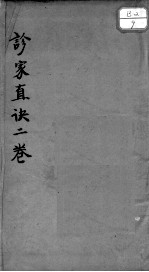 診家直诀二卷